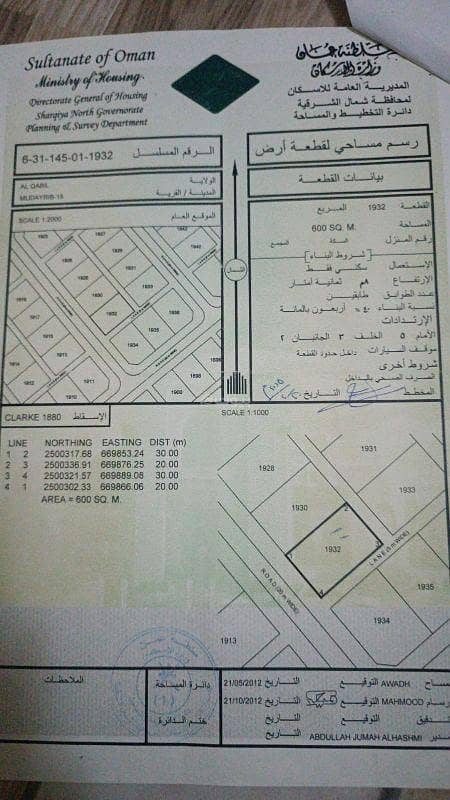 Sultanate of Oman
Ministry of Housing
Directorate General of Housing
Sharqiya North Governorate
Planning & Survey Department
سلطنة عمان
وزارة الإسكان
المديرية العامة للاسكان
لمحافظة شمال الشرقية
دائرة التخطيط والمساحة
6-31-145-01-1932 الرقم المسلسل
رسم مساحي لقطعة أرض
بيانات القطعة
AL QABIL الولاية
MUDAYRIB-15 المدينة / القرية
SCALE 1:2000 الموقع العام
القطعة 1932 المربع
المساحة 600 SQ. M.
رقم المنزل السكة المجمع
شروط البناء
الاستعمال سكني فقط
الارتفاع ٨م ثمانية أمتار
عدد الطوابق طابقين
نسبة البناء ٤٠٪ أربعون بالمائة
الإرتدادات
الأمام ٥ الخلف ٣ الجانبان ٢
موقف السيارات داخل حدود القطعة
شروط أخرى
الصرف الصحي بالداخل
المخطط التاريخ
الشمال
1925
1942
1940
1928
1930
1917
1933
1932
1936
1914
1934
1935
1912
1911
1910
1900
1898
CLARKE 1880 الإسقاط
SCALE 1:1000
LINE NORTHING EASTING DIST (m)
1 2 2500317.68 669853.24 30.00
2 3 2500336.91 669876.25 20.00
3 4 2500321.57 669889.08 30.00
4 1 2500302.33 669866.06 20.00
AREA = 600 SQ. M.
1931
1928
1933
1930
2
1932
3
1
4
LANE (5 m WIDE)
ROAD (20 m WIDE)
1935
1934
1913
الملاحظات
دائرة المساحة
ختم الدائرة
مساح AWADH التوقيع التاريخ 21/05/2012
رسام MAHMOOD التوقيع التاريخ 21/10/2012
تدقيق التوقيع التاريخ
مدير ABDULLAH JUMAH ALHASHMI التاريخ